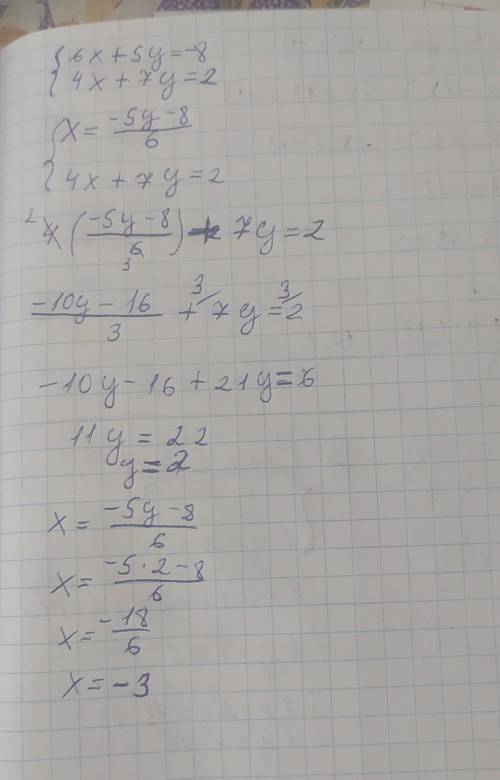 { 6x + 5y = -8
4x + 7y = 2
{ x = (-5y - 8)/6
4x + 7y = 2
2 4 ((-5y - 8)/6 3) + 7y = 2
(-10y - 16)/3 + 3/ 7y = 3/ 2
-10y - 16 + 21y = 6
11y = 22
y = 2
x = (-5y - 8)/6
x = (-5 · 2 - 8)/6
x = -18/6
x = -3